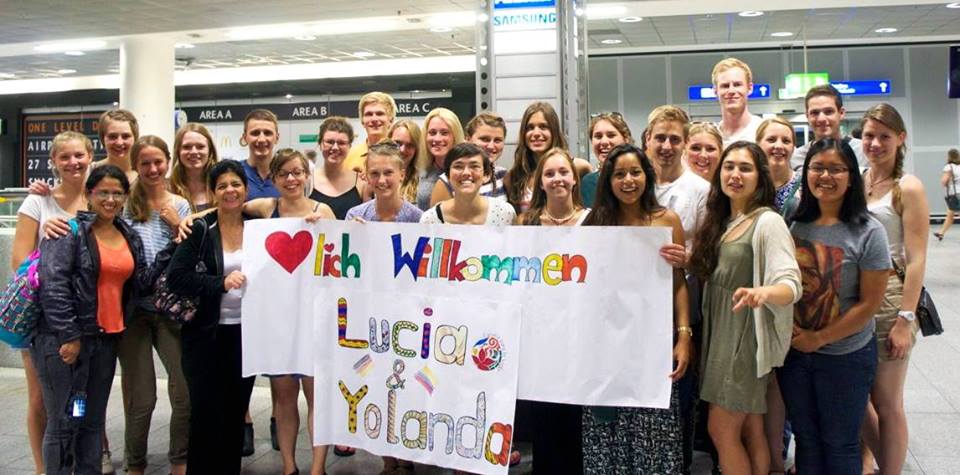 SAMSUNG
AREA A
AREA B
AREA C
ONE LEVEL
27 S
♥lich Willkommen
Lucia
&
Yolanda